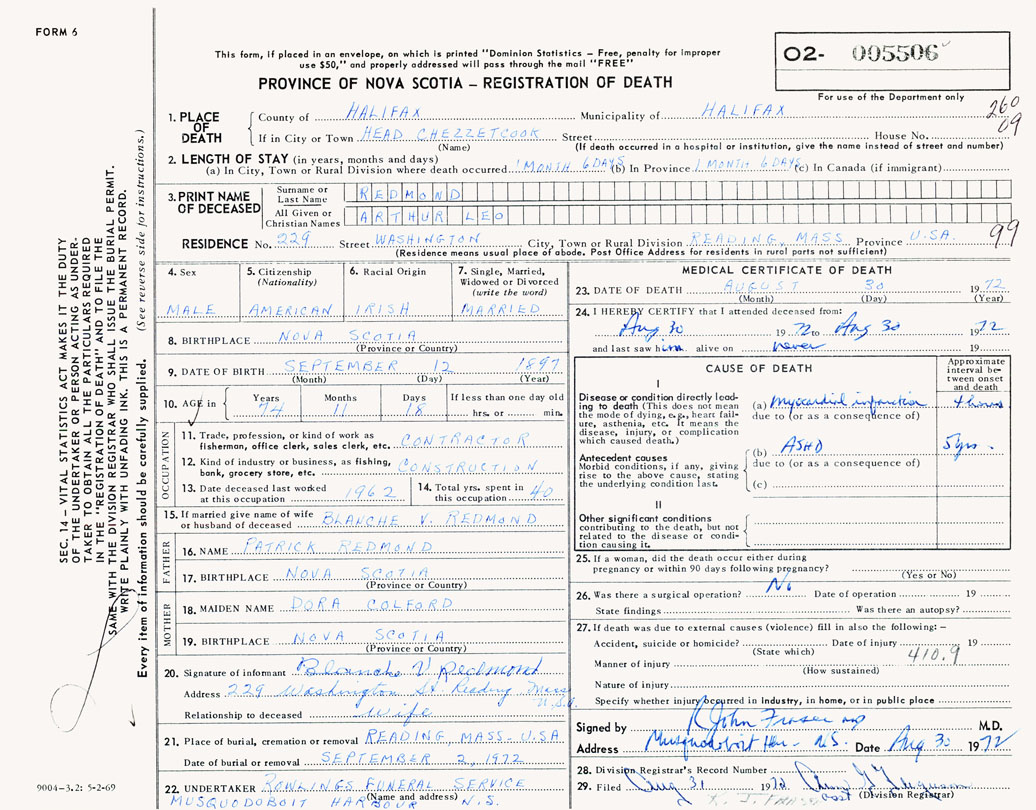 FORM 6
This form, if placed in an envelope, on which is printed "Dominion Statistics – Free, penalty for improper
use $50," and properly addressed will pass through the mail "FREE"
PROVINCE OF NOVA SCOTIA – REGISTRATION OF DEATH
O2- 005506
For use of the Department only
260
09
1. PLACE OF DEATH
County of HALIFAX Municipality of HALIFAX
If in City or Town HEAD CHEZZETCOOK Street House No.
(Name) (If death occurred in a hospital or institution, give the name instead of street and number)
2. LENGTH OF STAY (in years, months and days)
(a) In City, Town or Rural Division where death occurred 1 MONTH 6 DAYS (b) In Province 1 MONTH 6 DAYS (c) In Canada (if immigrant)
3. PRINT NAME OF DECEASED
Surname or Last Name REDMOND
All Given or Christian Names ARTHUR LEO
99
RESIDENCE No. 229 Street WASHINGTON City, Town or Rural Division READING, MASS Province U.S.A.
(Residence means usual place of abode. Post Office Address for residents in rural parts not sufficient)
4. Sex
MALE
5. Citizenship
(Nationality)
AMERICAN
6. Racial Origin
IRISH
7. Single, Married,
Widowed or Divorced
(write the word)
MARRIED
8. BIRTHPLACE NOVA SCOTIA
(Province or Country)
9. DATE OF BIRTH SEPTEMBER 12 1897
(Month) (Day) (Year)
10. AGE in
Years Months Days If less than one day old
74 11 18 hrs. or min.
OCCUPATION
11. Trade, profession, or kind of work as
fisherman, office clerk, sales clerk, etc. CONTRACTOR
12. Kind of industry or business, as fishing,
bank, grocery store, etc. CONSTRUCTION
13. Date deceased last worked
at this occupation 1962
14. Total yrs. spent in
this occupation 40
15. If married give name of wife
or husband of deceased BLANCHE V. REDMOND
FATHER
16. NAME PATRICK REDMOND
17. BIRTHPLACE NOVA SCOTIA
(Province or Country)
MOTHER
18. MAIDEN NAME DORA COLFORD
19. BIRTHPLACE NOVA SCOTIA
(Province or Country)
20. Signature of informant Blanche V Redmond
Address 229 Washington St Reading Mass
U.S.A.
Relationship to deceased wife
21. Place of burial, cremation or removal READING, MASS. U.S.A
Date of burial or removal SEPTEMBER 2, 1972
22. UNDERTAKER ROWLINGS FUNERAL SERVICE
(Name and address)
MUSQUODOBOIT HARBOUR N.S.
MEDICAL CERTIFICATE OF DEATH
23. DATE OF DEATH AUGUST 30 1972
(Month) (Day) (Year)
24. I HEREBY CERTIFY that I attended deceased from:
Aug 30 1972 to Aug 30 1972
and last saw him alive on never 19
CAUSE OF DEATH
Approximate
interval be-
tween onset
and death
I
Disease or condition directly lead-
ing to death (This does not mean
the mode of dying, e.g., heart fail-
ure, asthenia, etc. It means the
disease, injury, or complication
which caused death.)
(a) Myocardial infarction 4 hours
due to (or as a consequence of)
Antecedent causes
Morbid conditions, if any, giving
rise to the above cause, stating
the underlying condition last.
(b) ASHD 5 yrs.
due to (or as a consequence of)
(c)
II
Other significant conditions
contributing to the death, but not
related to the disease or condi-
tion causing it.
25. If a woman, did the death occur either during
pregnancy or within 90 days following pregnancy?
(Yes or No)
26. Was there a surgical operation? No Date of operation 19
State findings Was there an autopsy?
27. If death was due to external causes (violence) fill in also the following: –
Accident, suicide or homicide? Date of injury 19
(State which)
410.9
Manner of injury
(How sustained)
Nature of injury
Specify whether injury occurred in Industry, in home, or in public place
Signed by R John Fraser MD M.D.
Address Musquodoboit Har – N.S. Date Aug 30 1972
28. Division Registrar's Record Number
29. Filed Aug 31 1972
(Division Registrar)
SEC. 14 – VITAL STATISTICS ACT MAKES IT THE DUTY
OF THE UNDERTAKER OR PERSON ACTING AS UNDER-
TAKER TO OBTAIN ALL THE PARTICULARS REQUIRED
IN THE "REGISTRATION OF DEATH" AND TO FILE THE
SAME WITH THE DIVISION REGISTRAR WHO SHALL ISSUE THE BURIAL PERMIT.
WRITE PLAINLY WITH UNFADING INK. THIS IS A PERMANENT RECORD.
Every item of information should be carefully supplied. (See reverse side for instructions.)
9004–3.2: 5-2-69